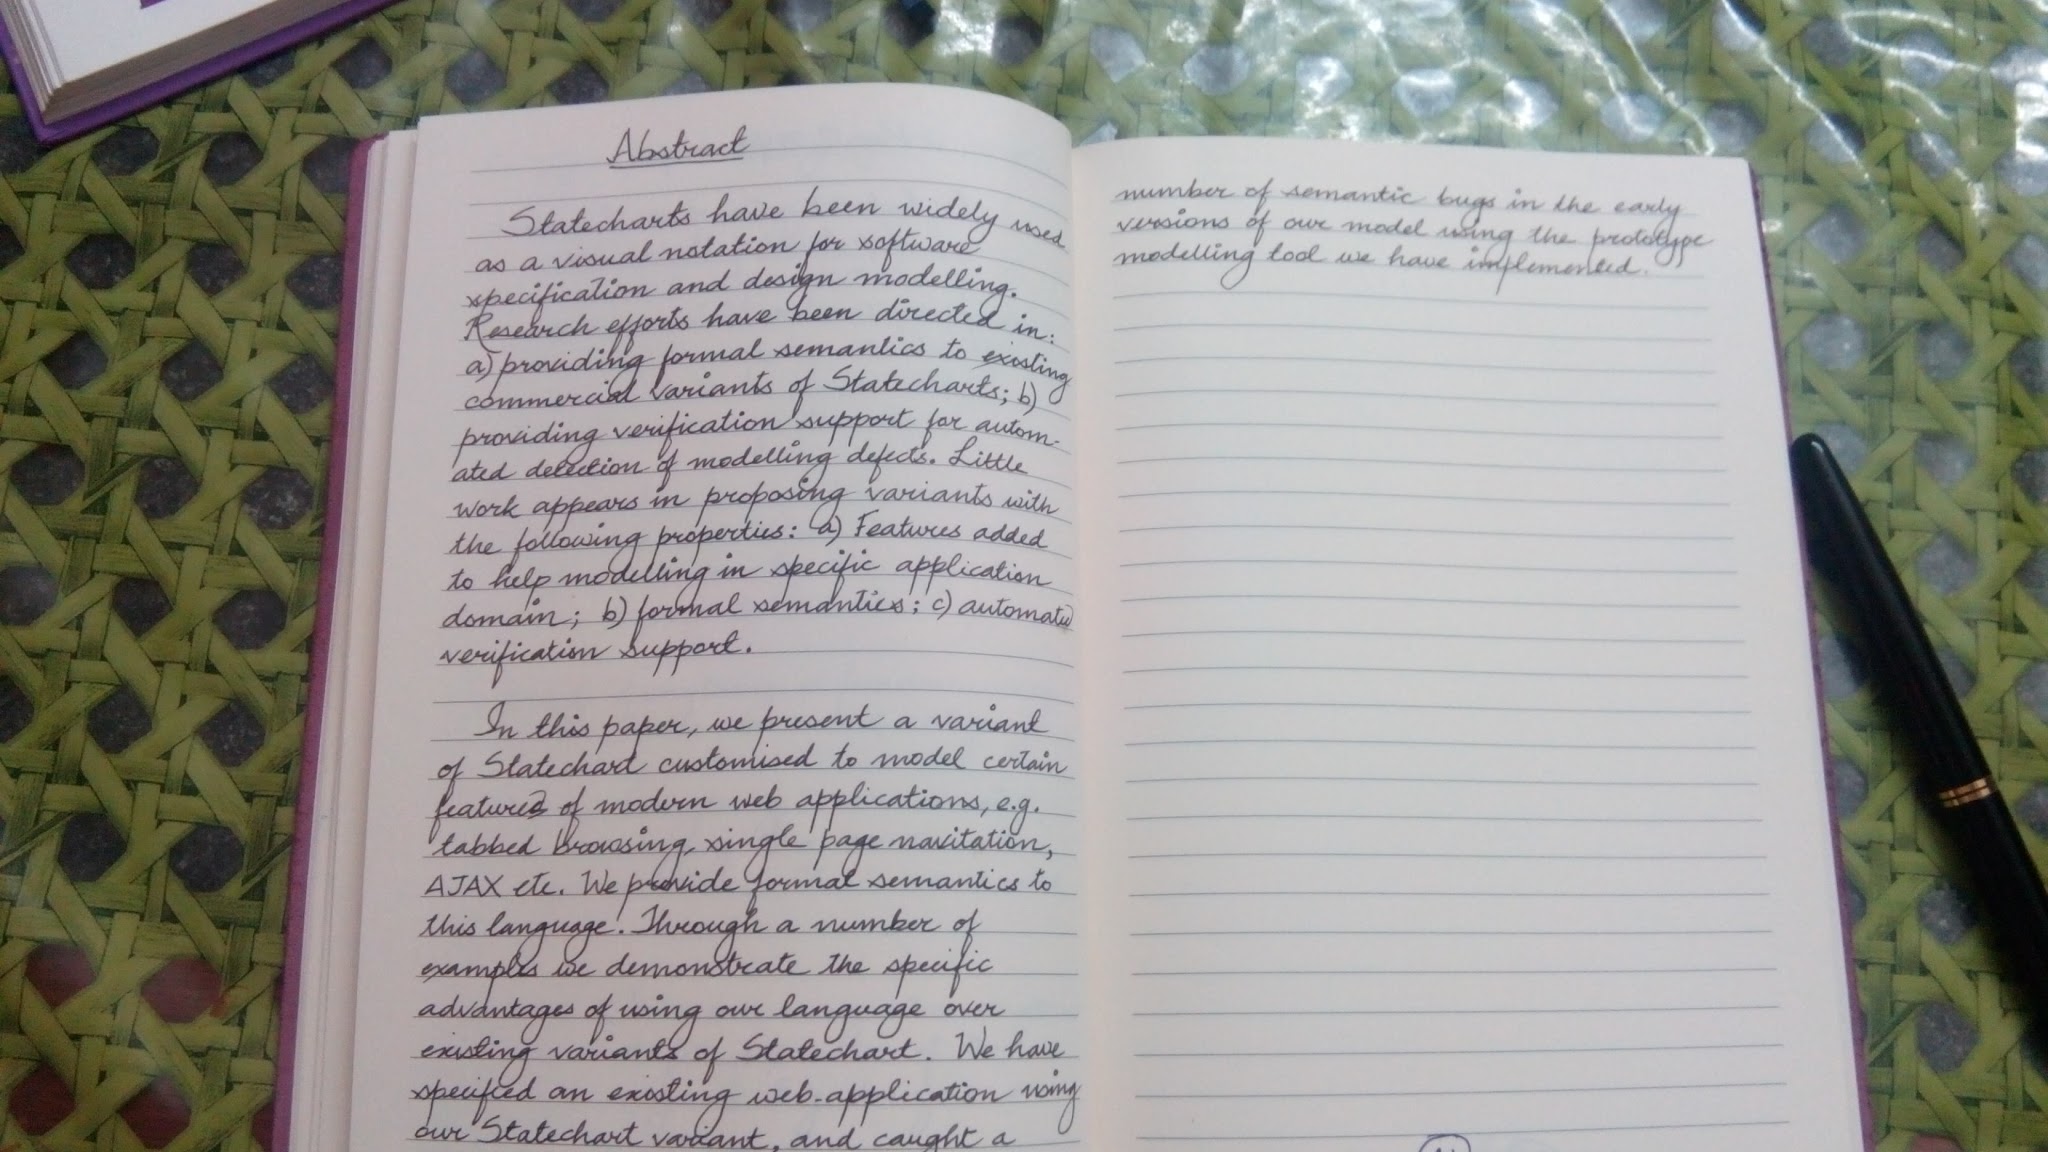 Abstract
Statecharts have been widely used
as a visual notation for software
specification and design modelling.
Research efforts have been directed in:
a) providing formal semantics to existing
commercial variants of Statecharts; b)
providing verification support for autom-
ated detection of modelling defects. Little
work appears in proposing variants with
the following properties: a) Features added
to help modelling in specific application
domain; b) formal semantics; c) automated
verification support.
In this paper, we present a variant
of Statechart customised to model certain
features of modern web applications, e.g.
tabbed browsing, single page navitation,
AJAX etc. We provide formal semantics to
this language. Through a number of
examples we demonstrate the specific
advantages of using our language over
existing variants of Statechart. We have
specified an existing web-application using
our Statechart variant, and caught a
number of semantic bugs in the early
versions of our model using the prototype
modelling tool we have implemented.